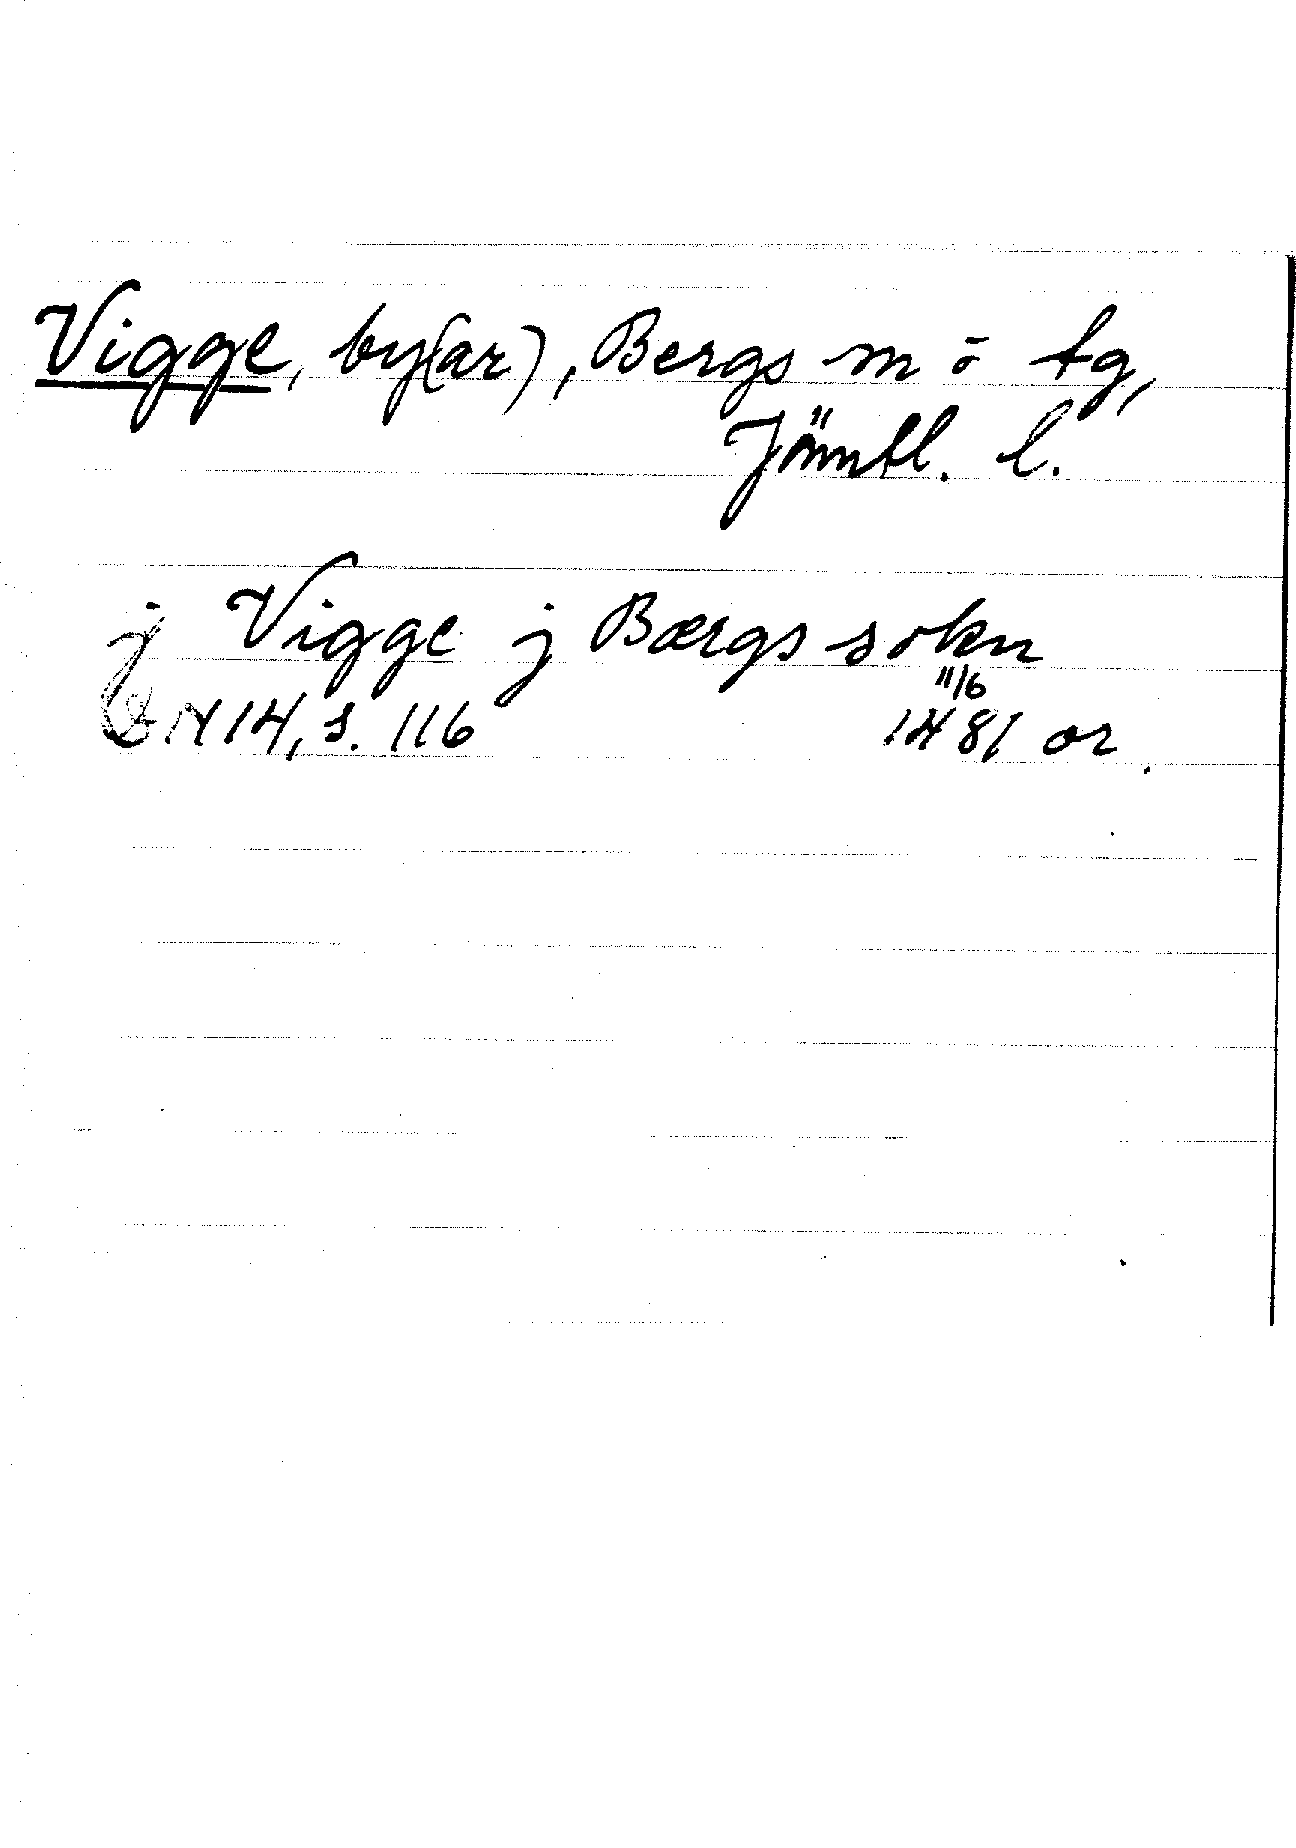 Vigge, by(ar), Bergs sn o tg,
Jämtl. l.
j Vigge j Bærgs sokn
11/6
DN 14, s. 116 1481 or.